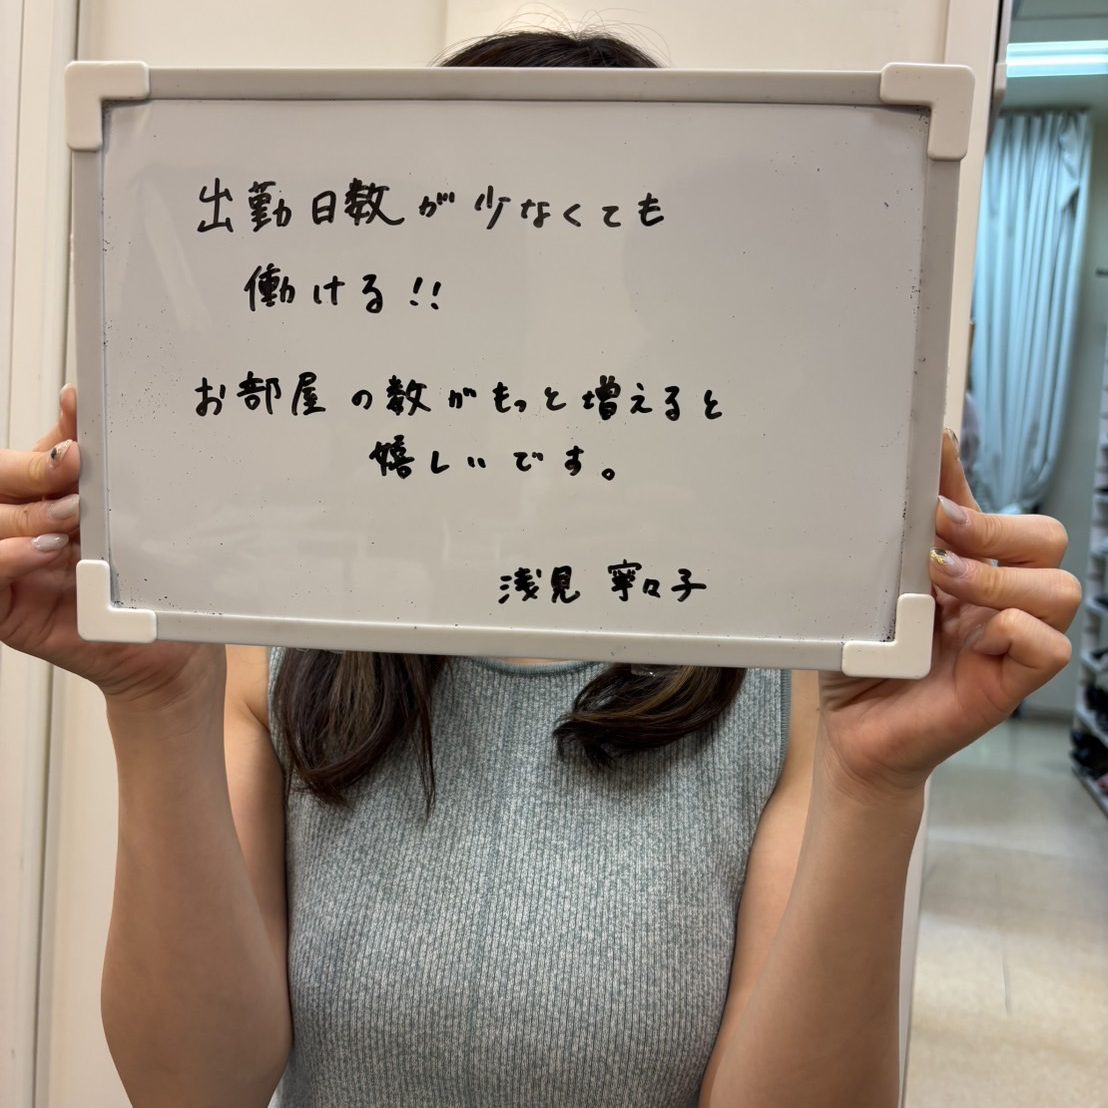 出勤日数が少なくても
働ける!!
お部屋の数がもっと増えると
嬉しいです。
浅見 寧々子